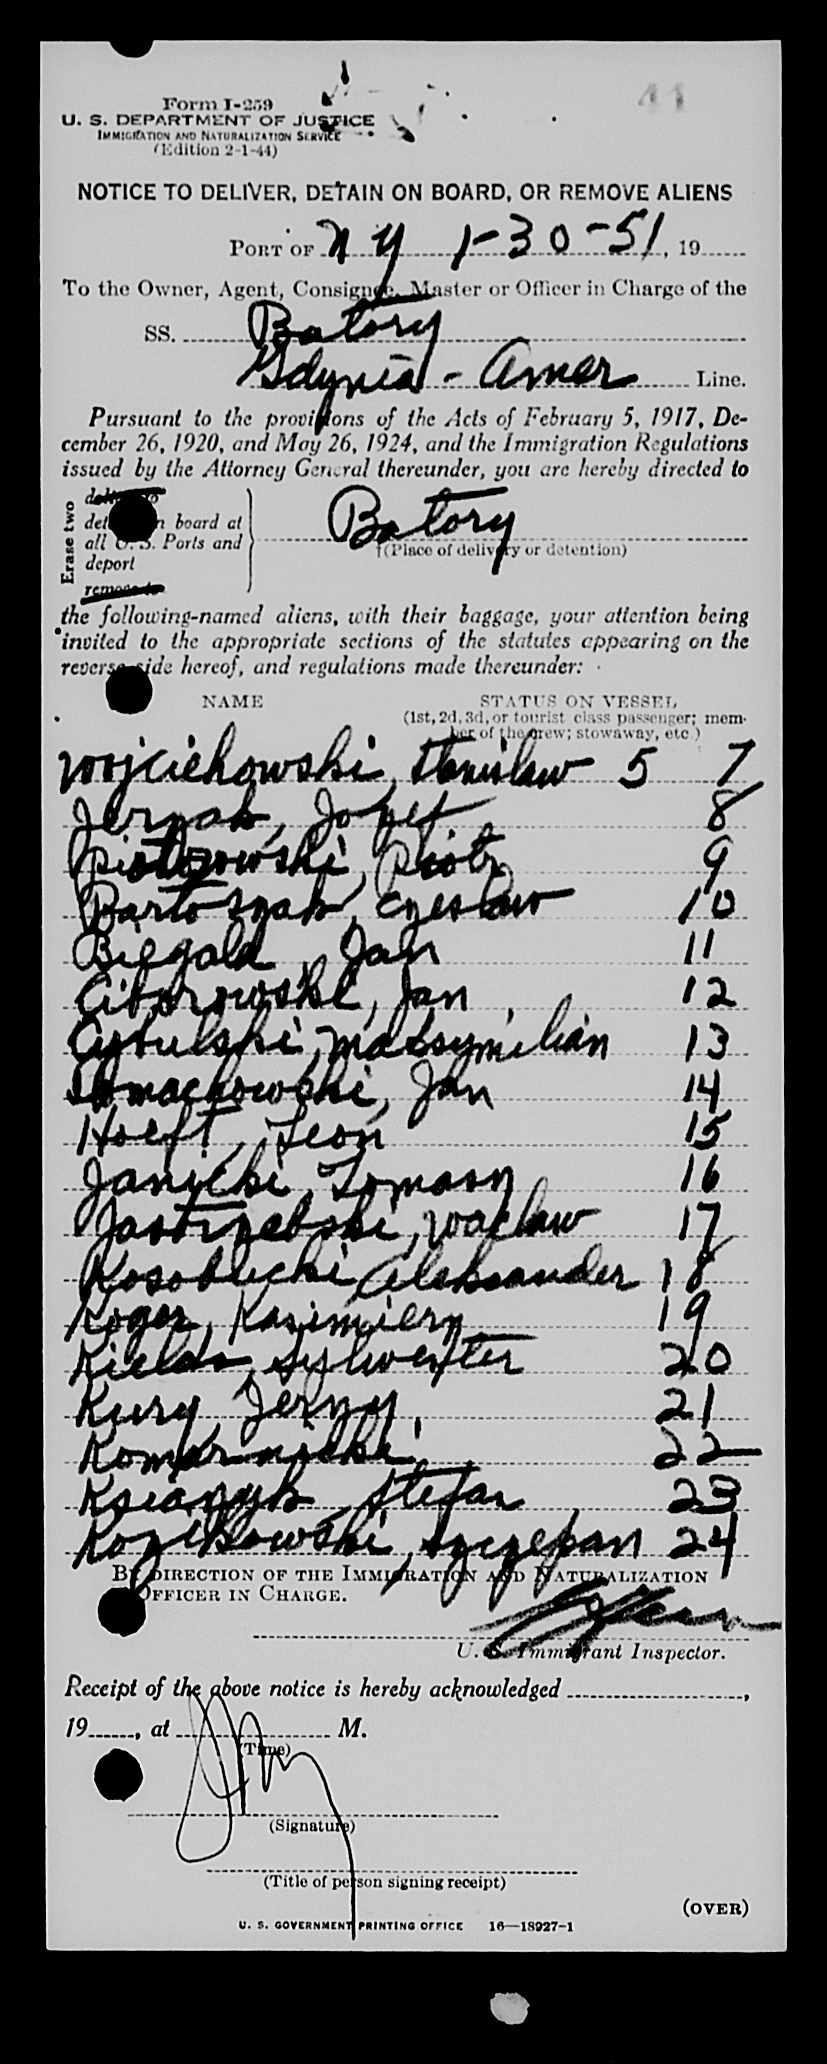 44
Form I-259
U. S. DEPARTMENT OF JUSTICE
IMMIGRATION AND NATURALIZATION SERVICE
(Edition 2-1-44)
NOTICE TO DELIVER, DETAIN ON BOARD, OR REMOVE ALIENS
PORT OF N Y 1-30-51, 19
To the Owner, Agent, Consignee, Master or Officer in Charge of the
SS. Batory
Gdynia - Amer Line.
Pursuant to the provisions of the Acts of February 5, 1917, De-
cember 26, 1920, and May 26, 1924, and the Immigration Regulations
issued by the Attorney General thereunder, you are hereby directed to
Erase two
deliver to
detain on board at
all U. S. Ports and
deport
remove to
Batory
†(Place of delivery or detention)
the following-named aliens, with their baggage, your attention being
invited to the appropriate sections of the statutes appearing on the
reverse side hereof, and regulations made thereunder:
NAME STATUS ON VESSEL
(1st, 2d, 3d, or tourist class passenger; mem-
ber of the crew; stowaway, etc.)
Wojciehowski, Stanislaw 5 7
Jerzak, Jozef 8
Piotrowski, Piotr 9
Bartoszak, Czeslaw 10
Biegala, Jan 11
Ciborowski, Jan 12
Cybulski, Maksymilian 13
Domachowski, Jan 14
Hoeft, Leon 15
Janicki, Tomasz 16
Jastrzebski, Waclaw 17
Kosobucki Aleksander 18
Koger, Kazimierz 19
Kielas, Sylwester 20
Kury Jerzy 21
Komarnicki 22
Ksiazyk Stefan 23
Kozikowski, Szczepan 24
BY DIRECTION OF THE IMMIGRATION AND NATURALIZATION
OFFICER IN CHARGE.
U. S. Immigrant Inspector.
Receipt of the above notice is hereby acknowledged ,
19 , at M.
(Time)
(Signature)
(Title of person signing receipt)
(OVER)
U. S. GOVERNMENT PRINTING OFFICE 16—18927-1